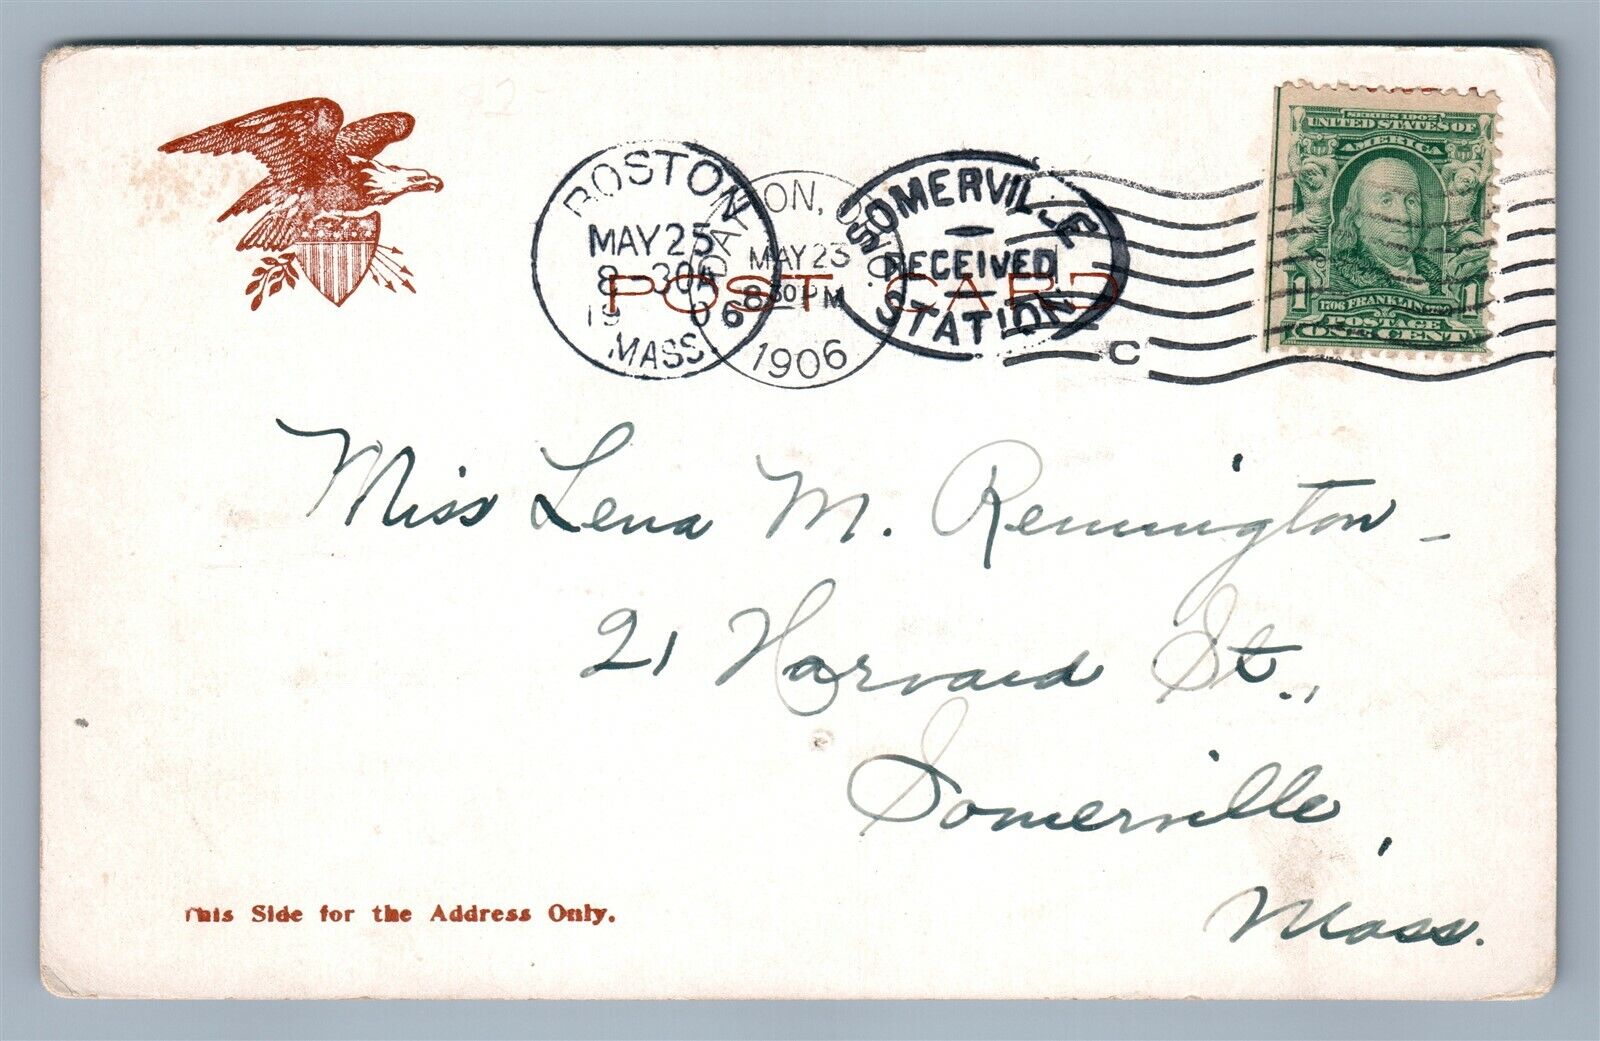 SERIES 1902
UNITED STATES OF
AMERICA
1 1706 FRANKLIN 1
POSTAGE
ONE CENT
BOSTON
MAY 25
8-30A
1906
MASS.
DAYTON, OHIO.
MAY 23
8 30 PM
1906
SOMERVILLE
RECEIVED
STATION
C
POST CARD
Miss Lena M. Remington
21 Harvard St.,
Somerville,
Mass.
This Side for the Address Only.